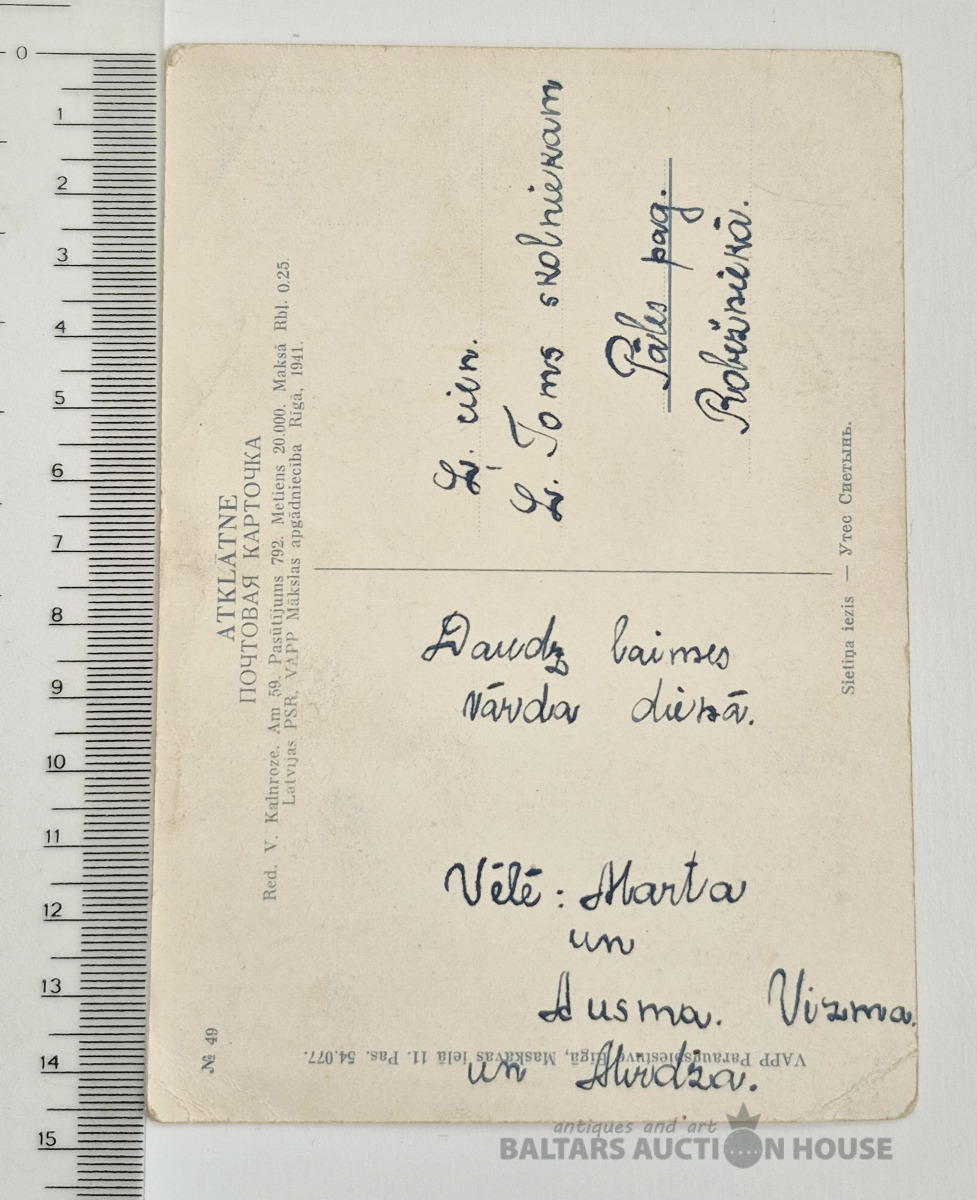 ATKLĀTNE
ПОЧТОВАЯ КАРТОЧКА
Red. V. Kalnroze. Am 59. Pasūtījums 792. Metiens 20.000. Maksā Rbļ. 0.25.
Latvijas PSR, VAPP Mākslas apgādniecība Rīgā, 1941.
Daudz laimes
vārda dienā.
Vēlē: Marta
un
Ausma. Vizma.
un Mirdza.
Z. cien.
Z. Toms skolniekam
Pāles pag.
Robežniekā.
Sietiņa iezis — Утес Сиетынь.
№ 49
VAPP Paraugspiestuve, Rīgā, Maskavas ielā 11. Pas. 54.077.
0
1
2
3
4
5
6
7
8
9
10
11
12
13
14
15
antiques and art
BALTARS AUCTION HOUSE